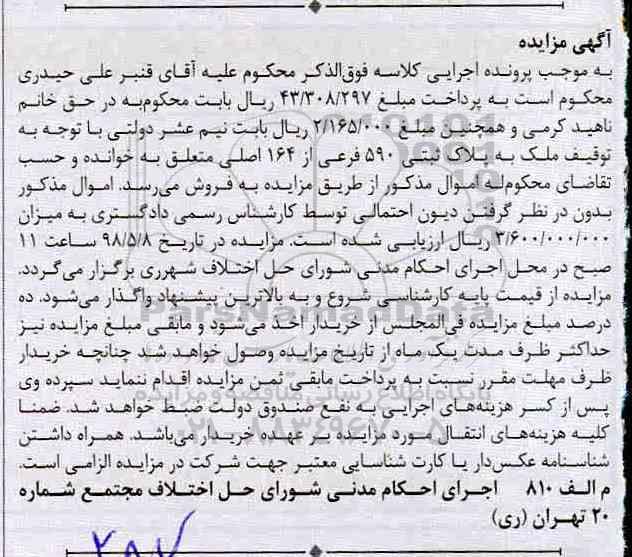 آگهی مزایده
به موجب پرونده اجرایی کلاسه فوق‌الذکر محکوم علیه آقای قنبر علی حیدری
محکوم است به پرداخت مبلغ ۴۳/۳۰۸/۲۹۷ ریال بابت محکوم‌به در حق خانم
ناهید کرمی و همچنین مبلغ ۲/۱۶۵/۰۰۰ ریال بابت نیم عشر دولتی با توجه به
توقیف ملک به پلاک ثبتی ۵۹۰ فرعی از ۱۶۴ اصلی متعلق به خوانده و حسب
تقاضای محکوم‌له اموال مذکور از طریق مزایده به فروش می‌رسد. اموال مذکور
بدون در نظر گرفتن دیون احتمالی توسط کارشناس رسمی دادگستری به میزان
۳/۶۰۰/۰۰۰/۰۰۰ ریال ارزیابی شده است. مزایده در تاریخ ۹۸/۵/۸ ساعت ۱۱
صبح در محل اجرای احکام مدنی شورای حل اختلاف شهرری برگزار می‌گردد.
مزایده از قیمت پایه کارشناسی شروع و به بالاترین پیشنهاد واگذار می‌شود. ده
درصد مبلغ مزایده فی‌المجلس از خریدار اخذ می‌شود و مابقی مبلغ مزایده نیز
حداکثر ظرف مدت یک ماه از تاریخ مزایده وصول خواهد شد چنانچه خریدار
ظرف مهلت مقرر نسبت به پرداخت مابقی ثمن مزایده اقدام ننماید سپرده وی
پس از کسر هزینه‌های اجرایی به نفع صندوق دولت ضبط خواهد شد. ضمنا
کلیه هزینه‌های انتقال مورد مزایده بر عهده خریدار می‌باشد. همراه داشتن
شناسنامه عکس‌دار یا کارت شناسایی معتبر جهت شرکت در مزایده الزامی است.
م الف ۸۱۰ اجرای احکام مدنی شورای حل اختلاف مجتمع شماره
۲۰ تهران (ری)
ParsNamadData
پایگاه اطلاع رسانی مناقصه و مزایده
۰۲۱-۸۸۳۴۹۶۷۰-۵